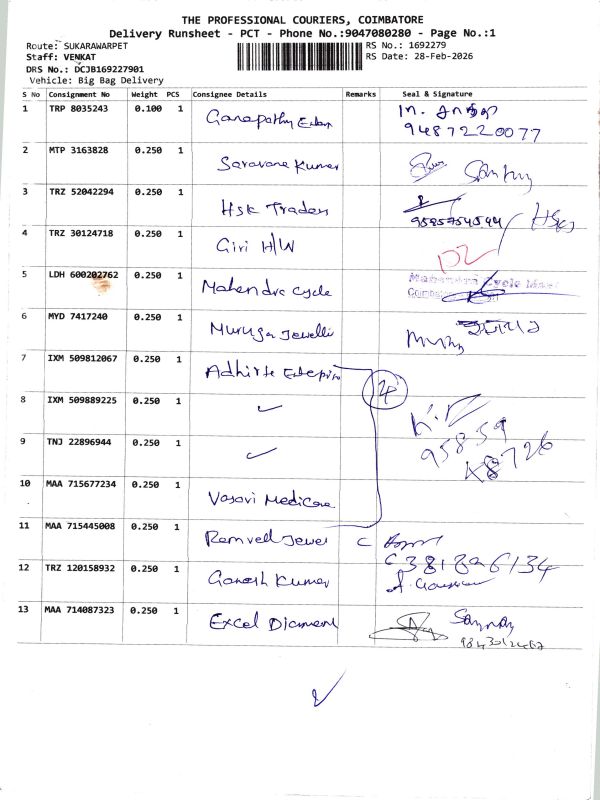 THE PROFESSIONAL COURIERS, COIMBATORE
Delivery Runsheet - PCT - Phone No.:9047080280 - Page No.:1
Route: SUKARAWARPET
RS No.: 1692279
Staff: VENKAT
RS Date: 28-Feb-2026
DRS No.: DCJB169227901
Vehicle: Big Bag Delivery
S No Consignment No Weight PCS Consignee Details Remarks Seal & Signature
1 TRP 8035243 0.100 1 Ganapathy
9487220077
2 MTP 3163828 0.250 1 Saravana Kumar
3 TRZ 52042294 0.250 1 Hsk Traders
4 TRZ 30124718 0.250 1 Giri H/W
5 LDH 600202762 0.250 1 Mahendra Cycle
6 MYD 7417240 0.250 1 Muruga Jewelli
7 IXM 509812067 0.250 1
8 IXM 509889225 0.250 1 ✓
9 TNJ 22896944 0.250 1 ✓
10 MAA 715677234 0.250 1 Vasavi Medicare
11 MAA 715445008 0.250 1 Ramvell Jewel
12 TRZ 120158932 0.250 1 Ganesh Kumar
13 MAA 714087323 0.250 1 Excel Diamond